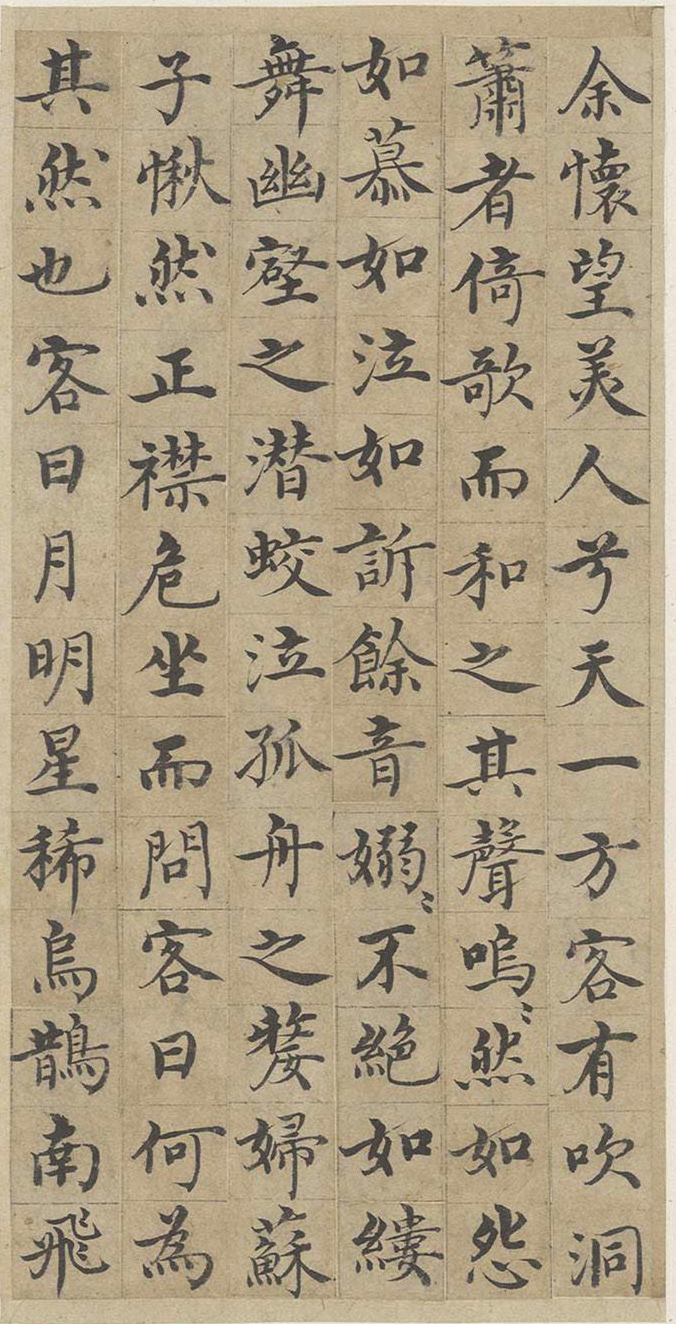 余懷望美人兮天一方客有吹洞
簫者倚歌而和之其聲嗚〻然如怨
如慕如泣如訴餘音嫋〻不絕如縷
舞幽壑之潛蛟泣孤舟之嫠婦蘇
子愀然正襟危坐而問客曰何為
其然也客曰月明星稀烏鵲南飛